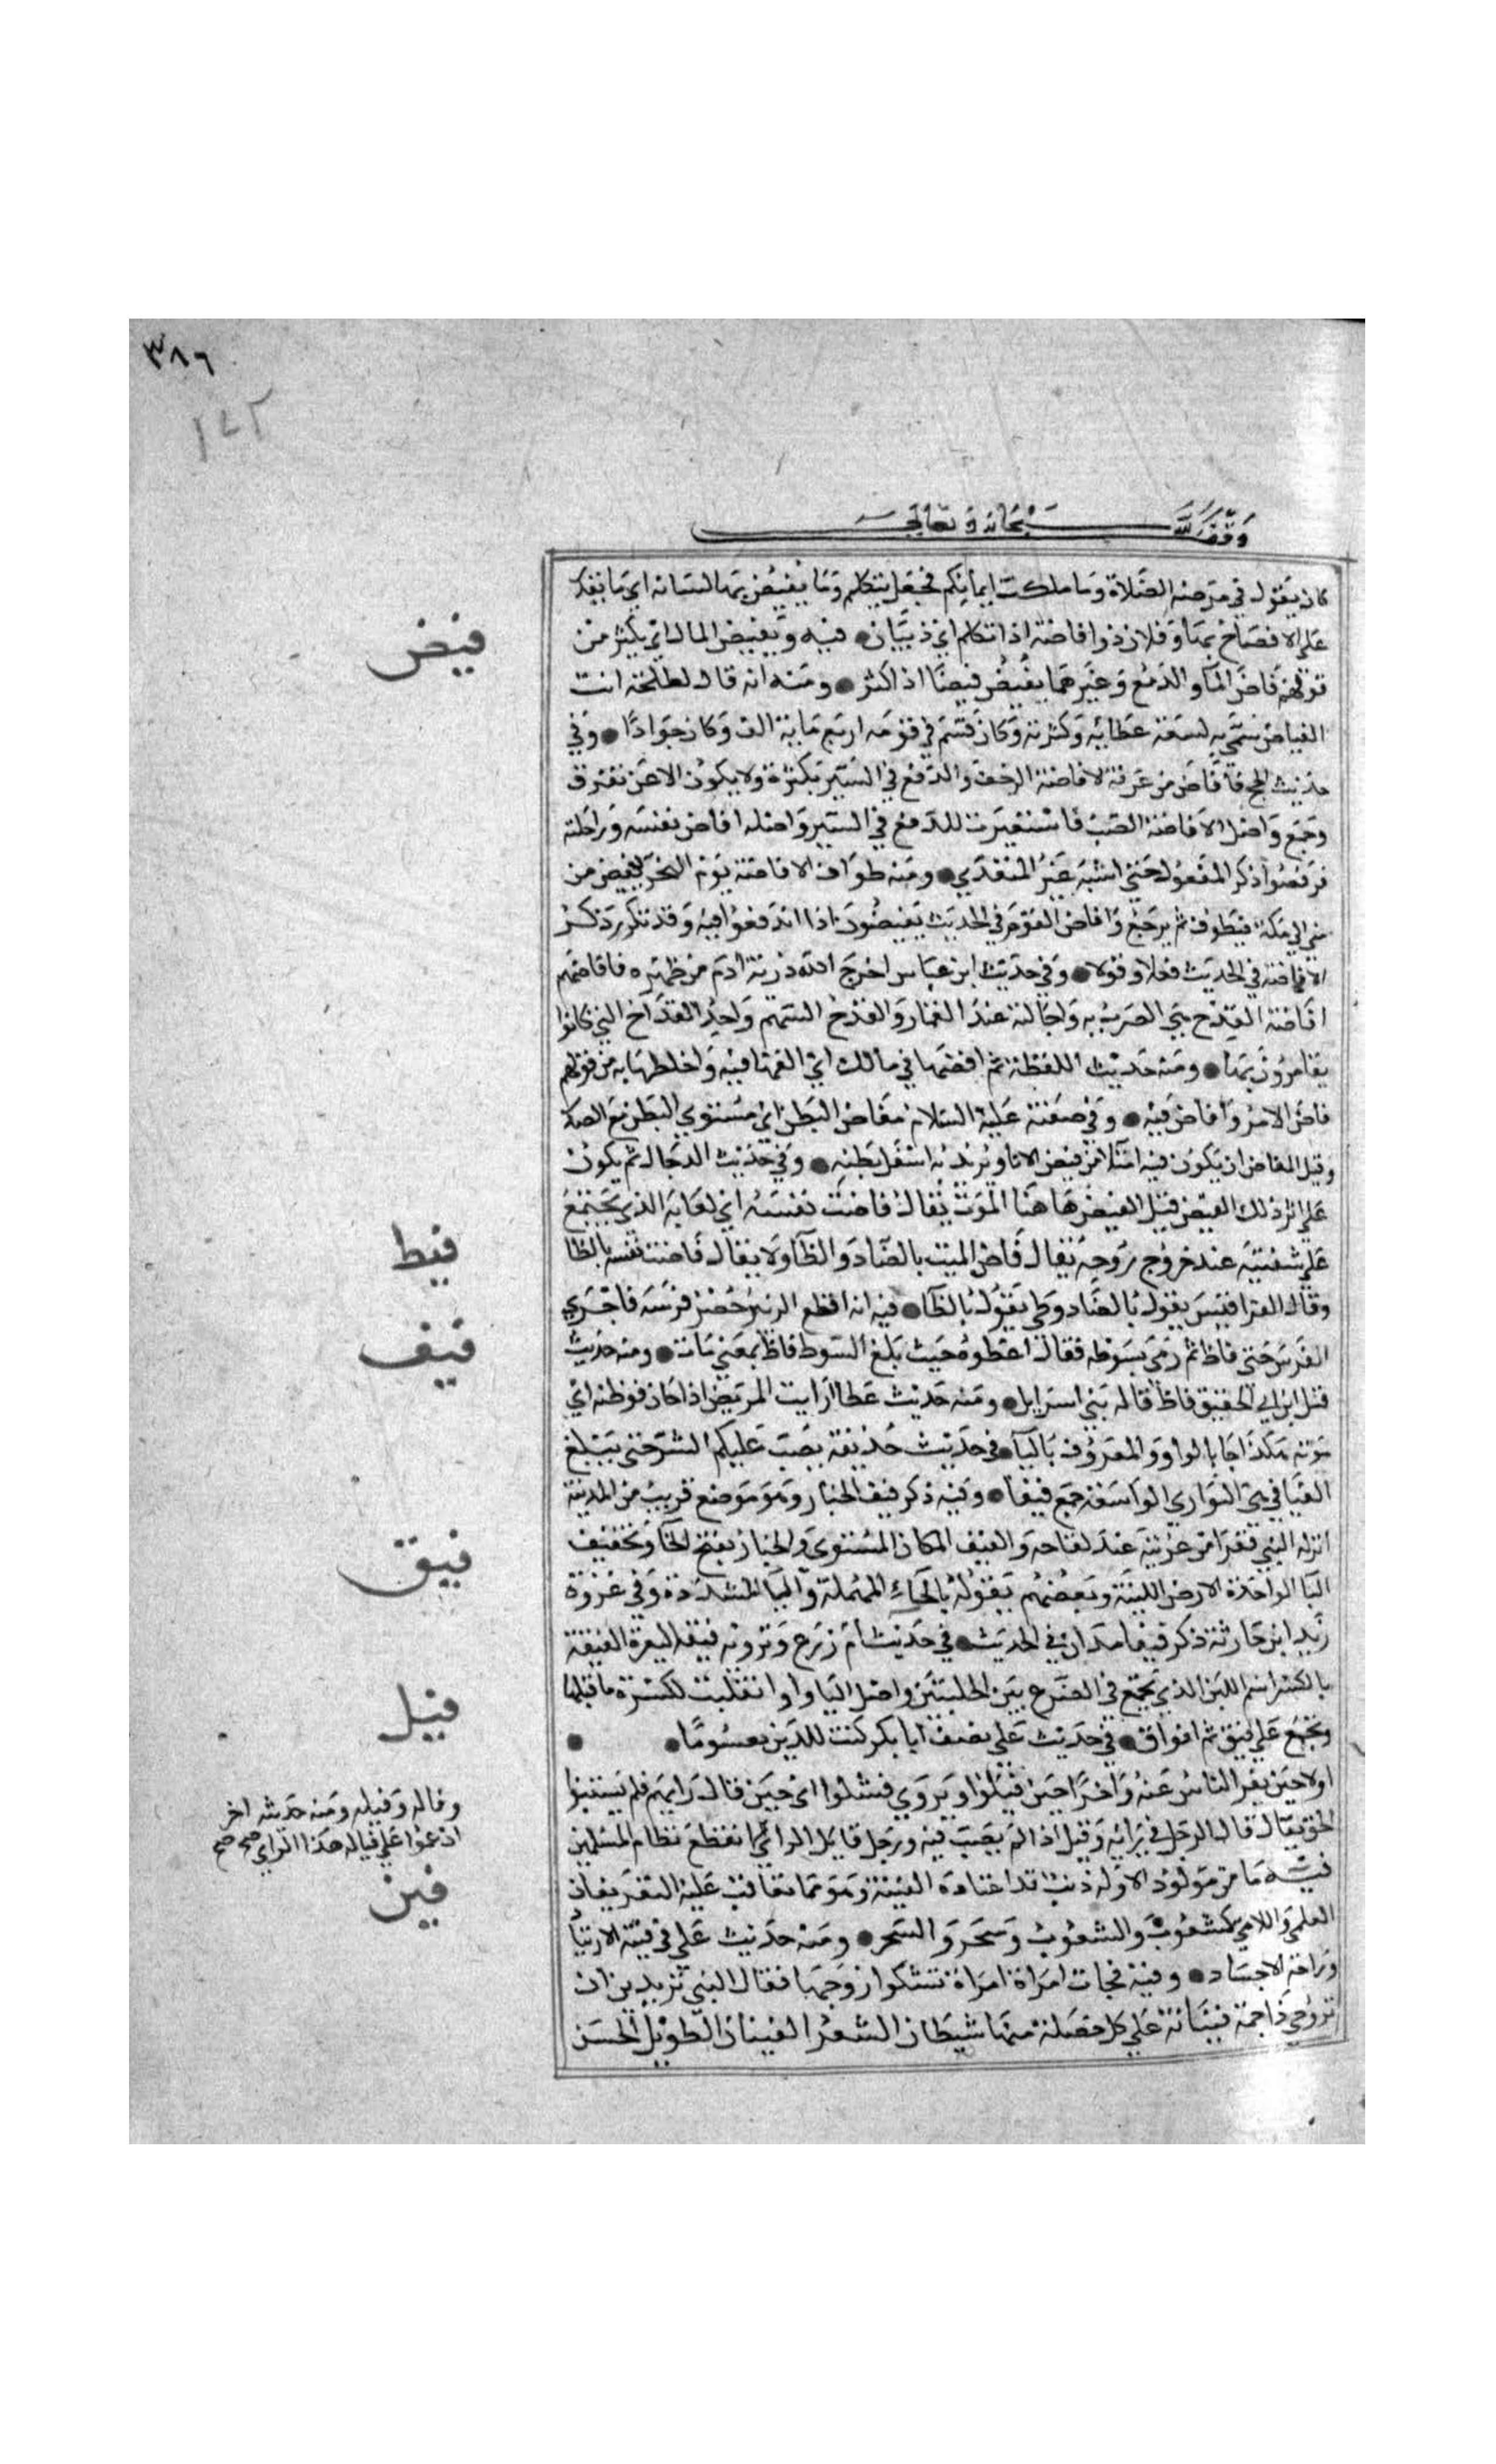 ٣٨٦
١٤٢
وقف لله سبحانه وتعالى
كان يقول في مرضه الصلاة وما ملكت ايمانكم فجعل يتكلم وما يفيض بها لسانه اي ما يقدر
على الافصاح بها وفلان ذوا فاضة اذا تكلم اي ذ بيان ● فيه ويفيض المال اي يكثر من
فيض
قولهم فاض الماء والدمع وغيرهما يفيض فيضا اذا كثر ● ومنه انه قال لطلحة انت
الفياض سمي به لسعة عطائه وكثرته وكان قسم في قومه اربع مائة الف وكان جوادا ● وفي
حديث الحج فافاض من عرفة الافاضة الزحف والدفع في السير بكثرة ولا يكون الا عن تفرق
وجمع واصل الافاضة الصب فاستعيرت للدفع في السير واصله افاض نفسه وراحلته
فرفضوا ذكر المفعول حتى اشبه غير المتعدي ● ومنه طواف الافاضة يوم النحر يفيض من
منى الى مكة فيطوف ثم يرجع وافاض القوم في الحديث يفيضون اذا اندفعوا فيه وقد تكرر ذكر
الافاضة في الحديث فعلا وقولا ● وفي حديث ابن عباس اخرج الله ذرية ادم من ظهره فافاضهم
افاضة القدح هي الضرب به واجالته عند القمار والقدح السهم واحد القداح التي كانوا
يقامرون بها ● ومنه حديث اللقطة ثم افضها في مالك اي القها فيه واخلطها به من قولهم
فاض الامر وافاض فيه ● وفي صفته عليه السلام مفاض البطن اي مستوي البطن مع الصدر
وقيل المفاض ان يكون فيه امتلاء من فيض الاناء ويريد به اسفل بطنه ● وفي حديث الدجال ثم يكون
على اثر ذلك الفيض قيل الفيض هاهنا الموت يقال فاضت نفسه اي لعابه الذي يجتمع
على شفتيه عند خروج روحه يقال فاض الميت بالضاد والظاء ولا يقال فاضت نفسه بالظا
فيظ
وقال الفرا قيس يقول بالضاد وطي يقول بالظاء ● فيه انه اقطع الزبير حضر فرسه فاجرى
الفرس حتى فاظ ثم رمى بسوطه فقال اعطوه حيث بلغ السوط فاظ بمعنى مات ● ومنه حديث
فيف
قتل ابن ابي الحقيق فاظ واله بني اسرايل ● ومنه حديث عطا ارايت المريض اذا حان فوظه اي
موته هكذا جا بالواو والمعروف بالياء ● في حديث حذيفة يصب عليكم الشر حتى يبلغ
الفيافي هي البراري الواسعة جمع فيفا ● وفيه ذكر فيف الخبار وهو موضع قريب من المدينة
انزله النبي نفرا من عرينة عند لقاحه والفيف المكان المستوي والخبار بفتح الخاء وتخفيف
فيق
البا الواحدة الارض اللينة وبعضهم يقوله بالحاء المهملة والبا المشددة وفي غزوة
زيد ابن حارثة ذكر فيفا مدان في الحديث ● في حديث ام زرع وترويه فيقة اليعرة الفيقة
بالكسر اسم اللبن الذي يجتمع في الضرع بين الحلبتين واصل اليا واوا انقلبت لكسرة ما قبلها
وتجمع على فيق ثم افواق ● في حديث علي يصف ابا بكر كنت للدين يعسوبا ● ●
فيل
اولا حين يفر الناس عنه واخرا حين فيلوا ويروى فشلوا اي حين قال رايهم فلم يستبينوا
وقاله وقيله ومنه حديثه اخر
ان عموا على قيالة هذا الراي صح صح
الحق يقال قال الرجل في رايه وفيل اذا لم يصب فيه ورجل فايل الراي انقطع نظام المسلمين
فيه ما من مولود الا وله ذنب قد اعتاده الفينة وهو مما تعاقب عليه التعريفان
فين
العلمي واللامي كشعوب والشعوب وسحر والسحر ● ومنه حديث علي في فينة الارتياد
وراحة الاجساد ● وفيه فجات امراة امراة تشكوا زوجها فقال النبي تريدين ان
تزوجي ذا جمة فينانة على كل خصلة منها شيطان الشعر الفينان الطويل الحسن